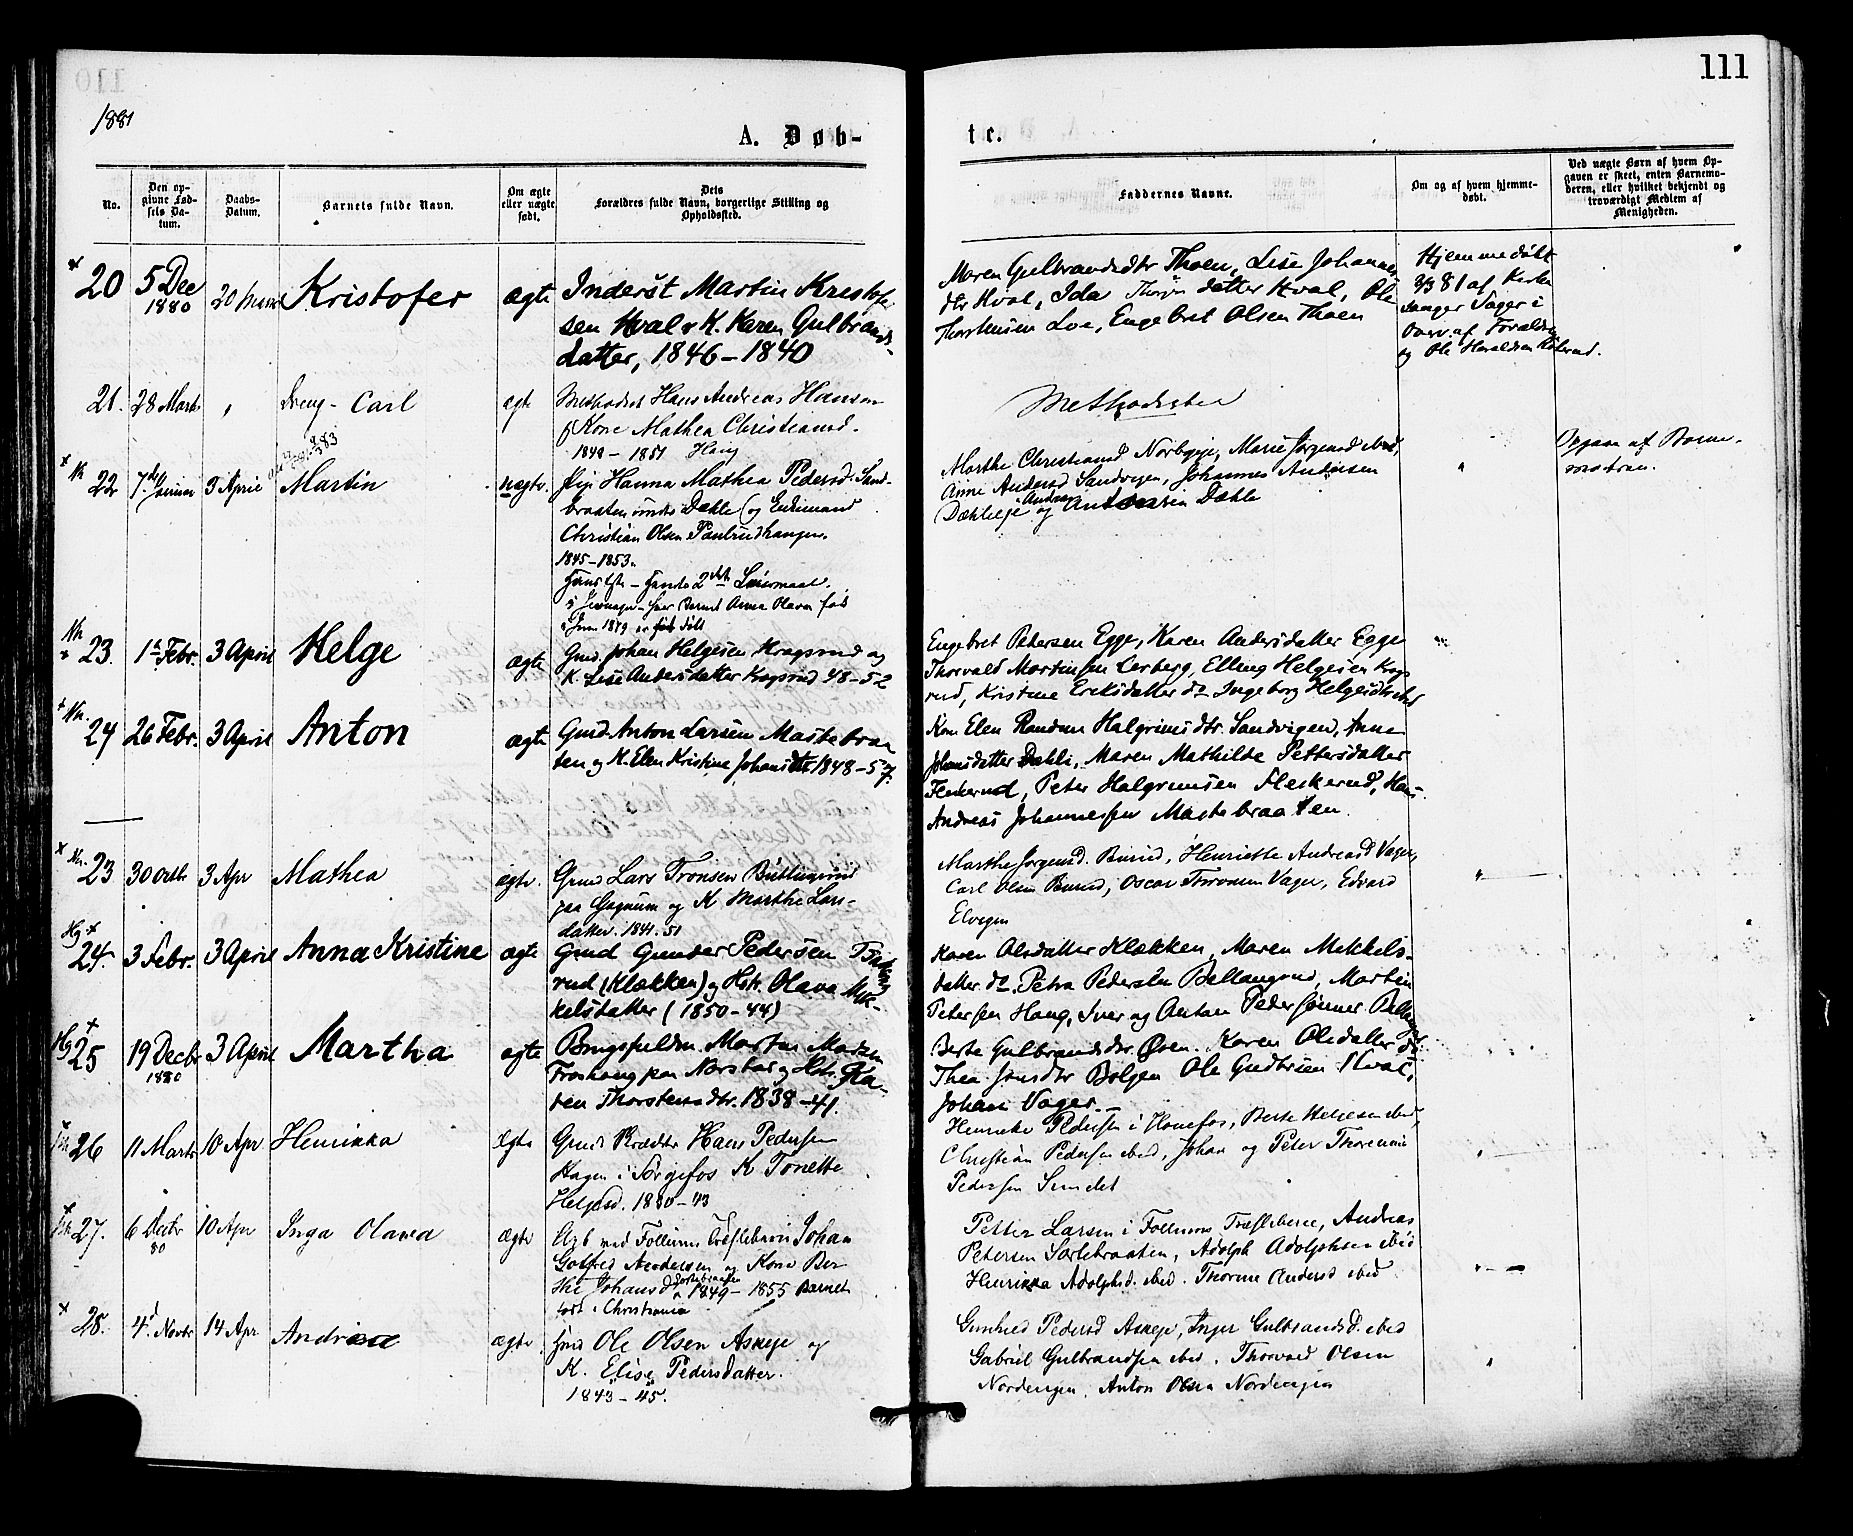 111
1881
A. Døb-
te.
No.
Den op-
givne Fød-
sels Da-
tum.
Daabs-
Datum.
Barnets fulde Navn.
Om ægte
eller uægte
født.
Dets
Forældres fulde Navn, borgerlige Stilling og
Opholdssted.
Faddernes Navne.
Om og af hvem hjemme-
døbt.
Ved uægte Børn af hvem Op-
gaven er skeet, enten Barnemo-
deren, eller hvilket bekjendt og
troværdigt Medlem af
Menigheden.
20
5 Dec
1880
20
Kristofer
ægte
Inderst Martin Kristofer
sen Hval & K. Karen Gulbrands
datter, 1846-1840
Maren Gulbrandsdtr Thoen, Lise Johannes
dtr Hval, Ida datter Hval, Ole
Thorstensen Loe, Engebret Olsen Thoen
Hjemmedøbt
81 af Kirke
sanger Vager i
Overv. af Forældre
og Ole Haraldsen
21.
28 Marts
Dreng - Carl
ægte
Methodist Hans Andreas Hansen
Kone Mathea Christiansd.
1849 - 1851 Haug
Methodister
22
7de Januar
3 April
Martin
uægte.
Pige Hanna Mathea Pedersd. Sand-
braaten under Dæhle (og Enkemand
Christian Olsen
1845-1853.
2det Leiermaal.
Anna Olava
1879
Marthe Christiansd Norbye, Marie Jørgensd ibid,
Anne Andersd Sandvigen, Johannes Andersen
Dæhleje og Dæhle
Opgave af Barne-
moderen.
23.
1ste Febr.
3 April
Helge
ægte
Gmd. Johan Helgesen Kragsrud og
K. Lise Andersdatter Kragsrud 48-52
Engebret Petersen Egge, Karen Andersdatter Egge
Thorvald Martinsen Lerberg, Elling Helgesen Krags
rud, Kristine Eriksdatter do Ingeborg Helgesdtr
24
26 Febr.
3 April
Anton
ægte
Gmd. Anton Larsen Mastebraa
ten og K. Elen Kristine Johansdtr 1848-57.
Kone Elen Randine Halgrimsdtr. Sandvigen, Anne
Johansdatter Dæhli, Maren Mathilde Pettersdatter
Fleskerud, Peter Halgrimsen Fleskerud, Hans
Andreas Johannessen Mastebraaten.
23
30 Octbr
3 Apr
Mathea
ægte.
Gmd Lars Tronsen
paa Gagnum og K Marthe Lars-
datter. 1841. 51
Marthe Jørgensd. Burud, Henriette Andreasd Vager,
Carl Olsen Burud, Oscar Thoresen Vager, Edvard
Elvegen
24.
3 Febr.
3 April
Anna Kristine
ægte
Gmd Gunder Pedersen
rud (Klækken) og Hstr. Olava Mik-
kelsdatter (1850-44)
Karen Olsdatter Klækken, Maren Mikkels-
datter do. Petra Pedersen Bellangrud, Martin
Petersen Haug, Iver og Anton Pedersønner
25
19 Decbr
1880
3 April
Martha
ægte
Brugsfuldm. Martin Madsen
Froshaug paa Nærstad og Hstr. Ka-
ren Thorstensdtr. 1838-41.
Berte Gulbrandsdtr. Øien. Karen Olsdatter do
Thea Jensdtr Bolgen Ole Gudbrien Hval,
Johan Vager.
26
11 Marts
10 Apr
Henrikka
Ægte
Gmd Hans Pedersen
Hagen i Sørgefos K Tonette
Helgesd. 1840-43
Henrikke Pedersen i Hønefos, Berte Helgesen ibid,
Christian Pedersen ibid, Johan og Peter
Pedersen Sundet
27.
6 Decbr
80
10 Apr
Inga Olava
ægte
Arb ved Follum Træsliberi Johan
Gotfred Andersen og Kone Ber-
the Johansd 1849-1855 Barnet
født i Christiania
Petter Larsen i Follums Træsliberie, Andreas
Petersen Sortebraaten, Adolph Adolphsen ibid
Henrikka Adolphsd. ibid. Thorine Andersd ibid
28.
4d. Novbr
14 Apr
ægte.
Gmd Ole Olsen Askeje og
K. Elise Pedersdatter.
1843-45.
Gunhild Pedersd Askeje, Inger Gulbrandsd. ibid
Gabriel Gulbrandsen ibid. Thorvald Olsen
Norderigen, Anton Olsen Norderigen